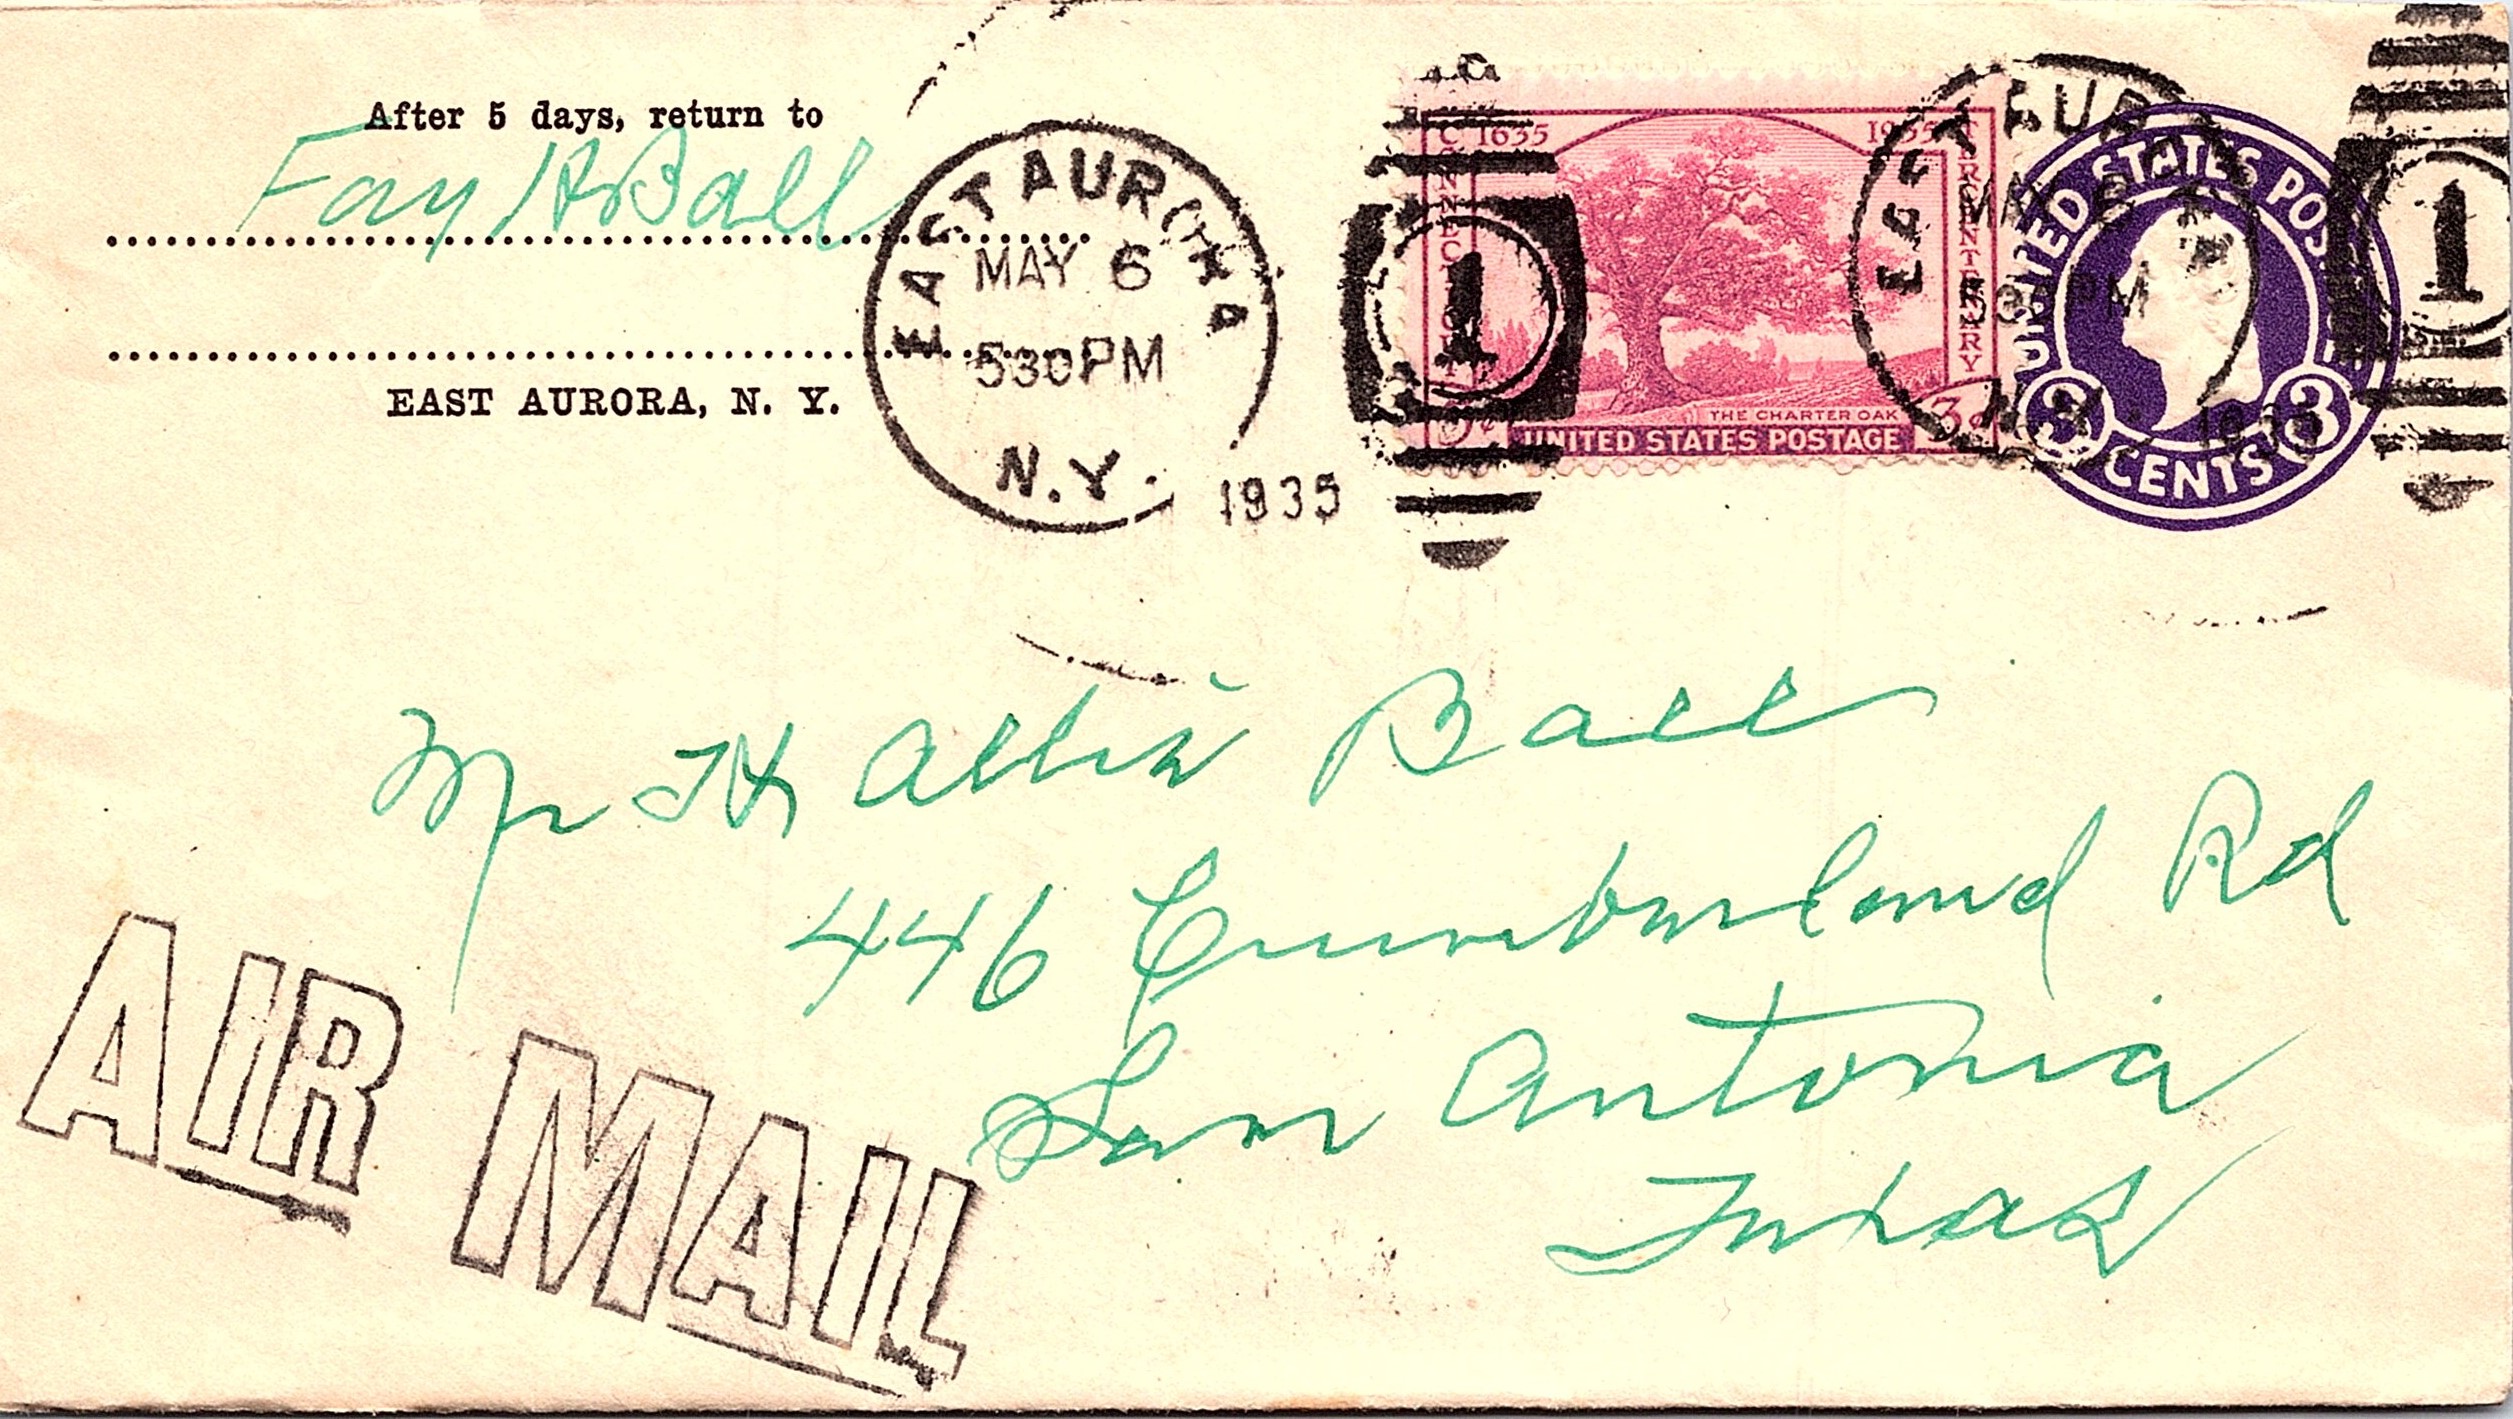 After 5 days, return to
Fay H Ball
EAST AURORA, N. Y.
EAST AURORA
MAY 6
530PM
N.Y.
1935
1
1635 1935
CONNECTICUT
TERCENTENARY
THE CHARTER OAK
3¢ 3¢
UNITED STATES POSTAGE
EAST AUR
PM
UNITED STATES POS
3 3
CENTS
1
Mr Ball
446 Cumberland Rd
San Antonio
Texas
AIR MAIL